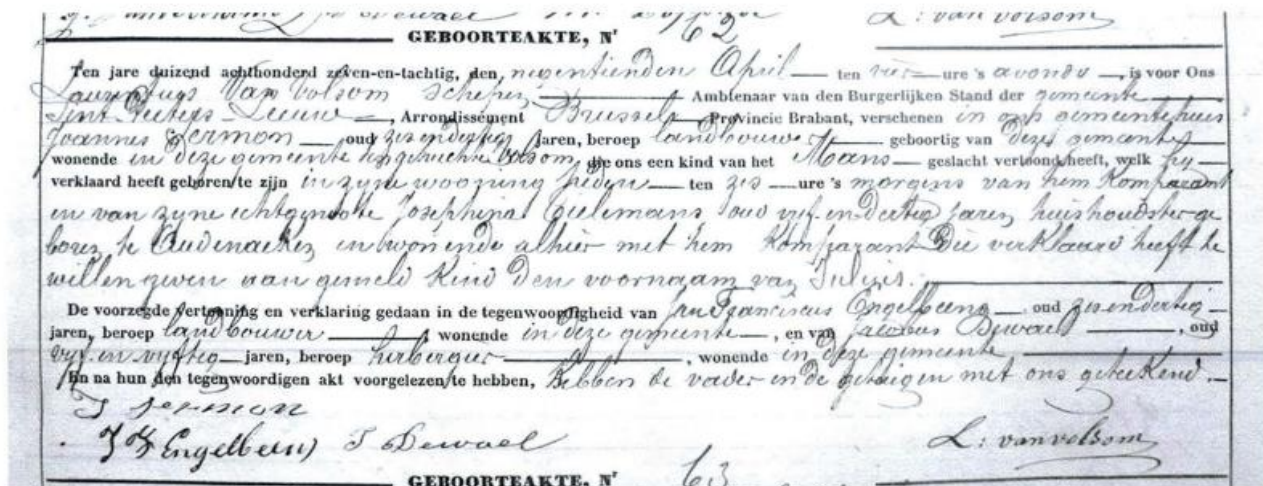 L: van volsom
GEBOORTEAKTE, Nr 62
Ten jare duizend achthonderd zeven-en-tachtig, den negentienden April ten vier ure 's avonds, is voor Ons
Laurentius Van Volsom Schepen Ambtenaar van den Burgerlijken Stand der gemeente
Sint-Peeters-Leeuw, Arrondissement Brussel Provincie Brabant, verschenen in ons gemeentehuis
Joannes Sermon oud zesendertig Jaren, beroep landbouwer geboortig van deze gemeente
wonende in deze gemeente ten gehuchte Volsom, die ons een kind van het Mans geslacht vertoond heeft, welk hy
verklaard heeft geboren te zijn in zyne wooning heden ten zes ure 's morgens van hem Komparant
en van zyne echtgenoote Josephina Tielemans oud vyf-en-dertig jaren huishoudster ge
boren te Oudenaeken en wonende alhier met hem Komparant Die verklaard heeft te
willen geven aan gemeld Kind den voornaam van Julius.
De voorzegde vertooning en verklaring gedaan in de tegenwoordigheid van Jan Franciscus Engelbeens oud zesendertig
jaren, beroep landbouwer, wonende in deze gemeente, en van Jacobus Dewael, oud
vyf-en-vyftig jaren, beroep herbergier, wonende in deze gemeente
En na hun den tegenwoordigen akt voorgelezen te hebben, hebben de vader en de getuigen met ons geteekend.
J Sermon
J F Engelbeens J Dewael L: van volsom
GEBOORTEAKTE, Nr 63